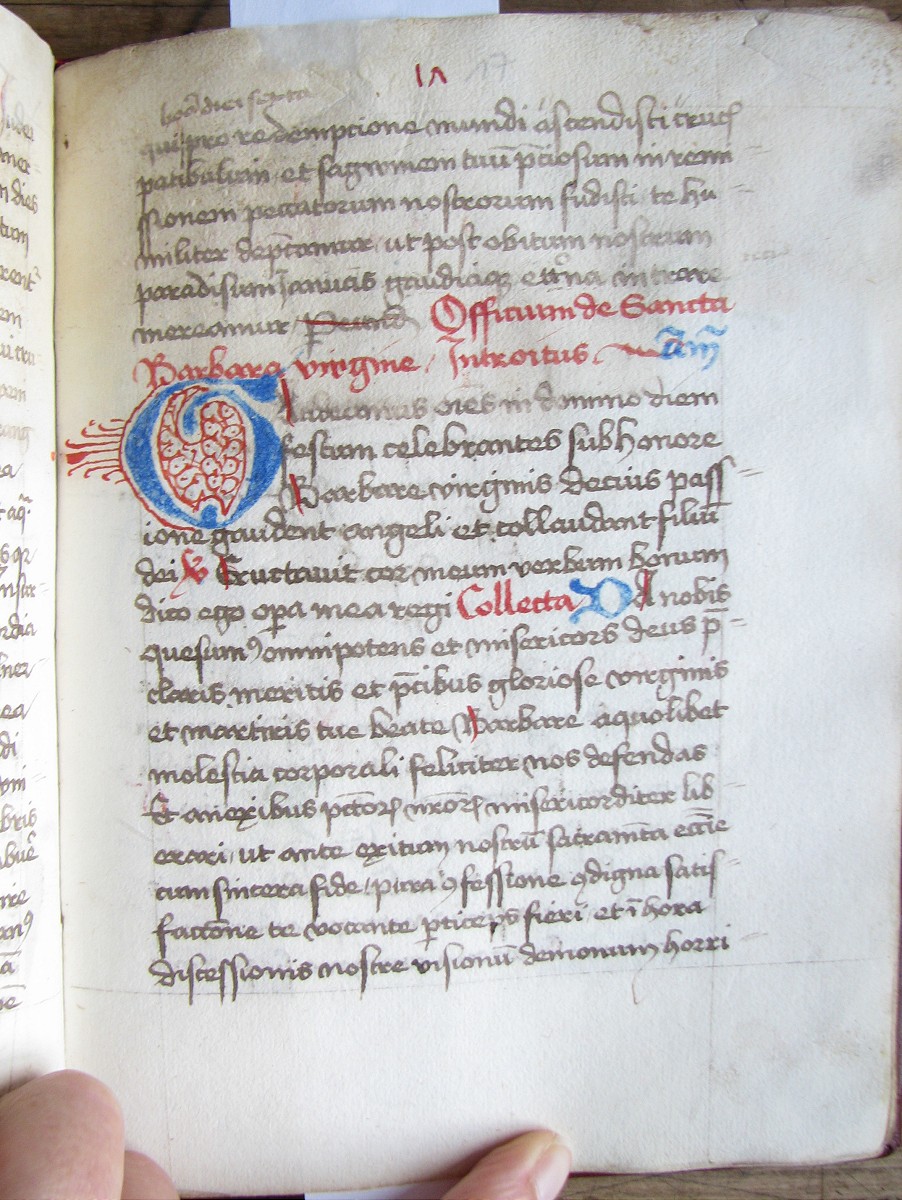 17 17
hora diei sexta
qui pro redempcione mundi ascendisti crucis
patibulum et sagwinem tuū p̄ciosum in remi
ssionem peccatorum nostrorum fudisti te hu
militer dep̄camur ut post obitum nostrum
paradisum Ianuas gaudia et̄na intrare
mereamur Officium de Sancta
Barbara virgine Introitus
Gaudeamus oīes in domino diem
festum celebrantes sub honore
Barbare virginis de cuius pass
ione gaudent angeli et collaudant filiū
dei ℣ Eructavit cor meum verbum bonum
dico ego oꝑa mea regi Collecta DA nobis
quesumꝰ omnipotens et misericors deus p̄
claris meritis et p̄cibus gloriose virginis
et martiris tue beate Barbare a quolibet
molestia corporali feliciter nos defendas
Et a nexibus pctōrꝝ nrōrꝝ misericorditer lib
erari ut ante exitum nostrū sacramēta ecc̄ie
cum sincera fide pura ꝯfessione ꝯdigna satis
faccōne te vocante ꝑticeps fieri et ī hora
discessionis nostre visionū demonum horri